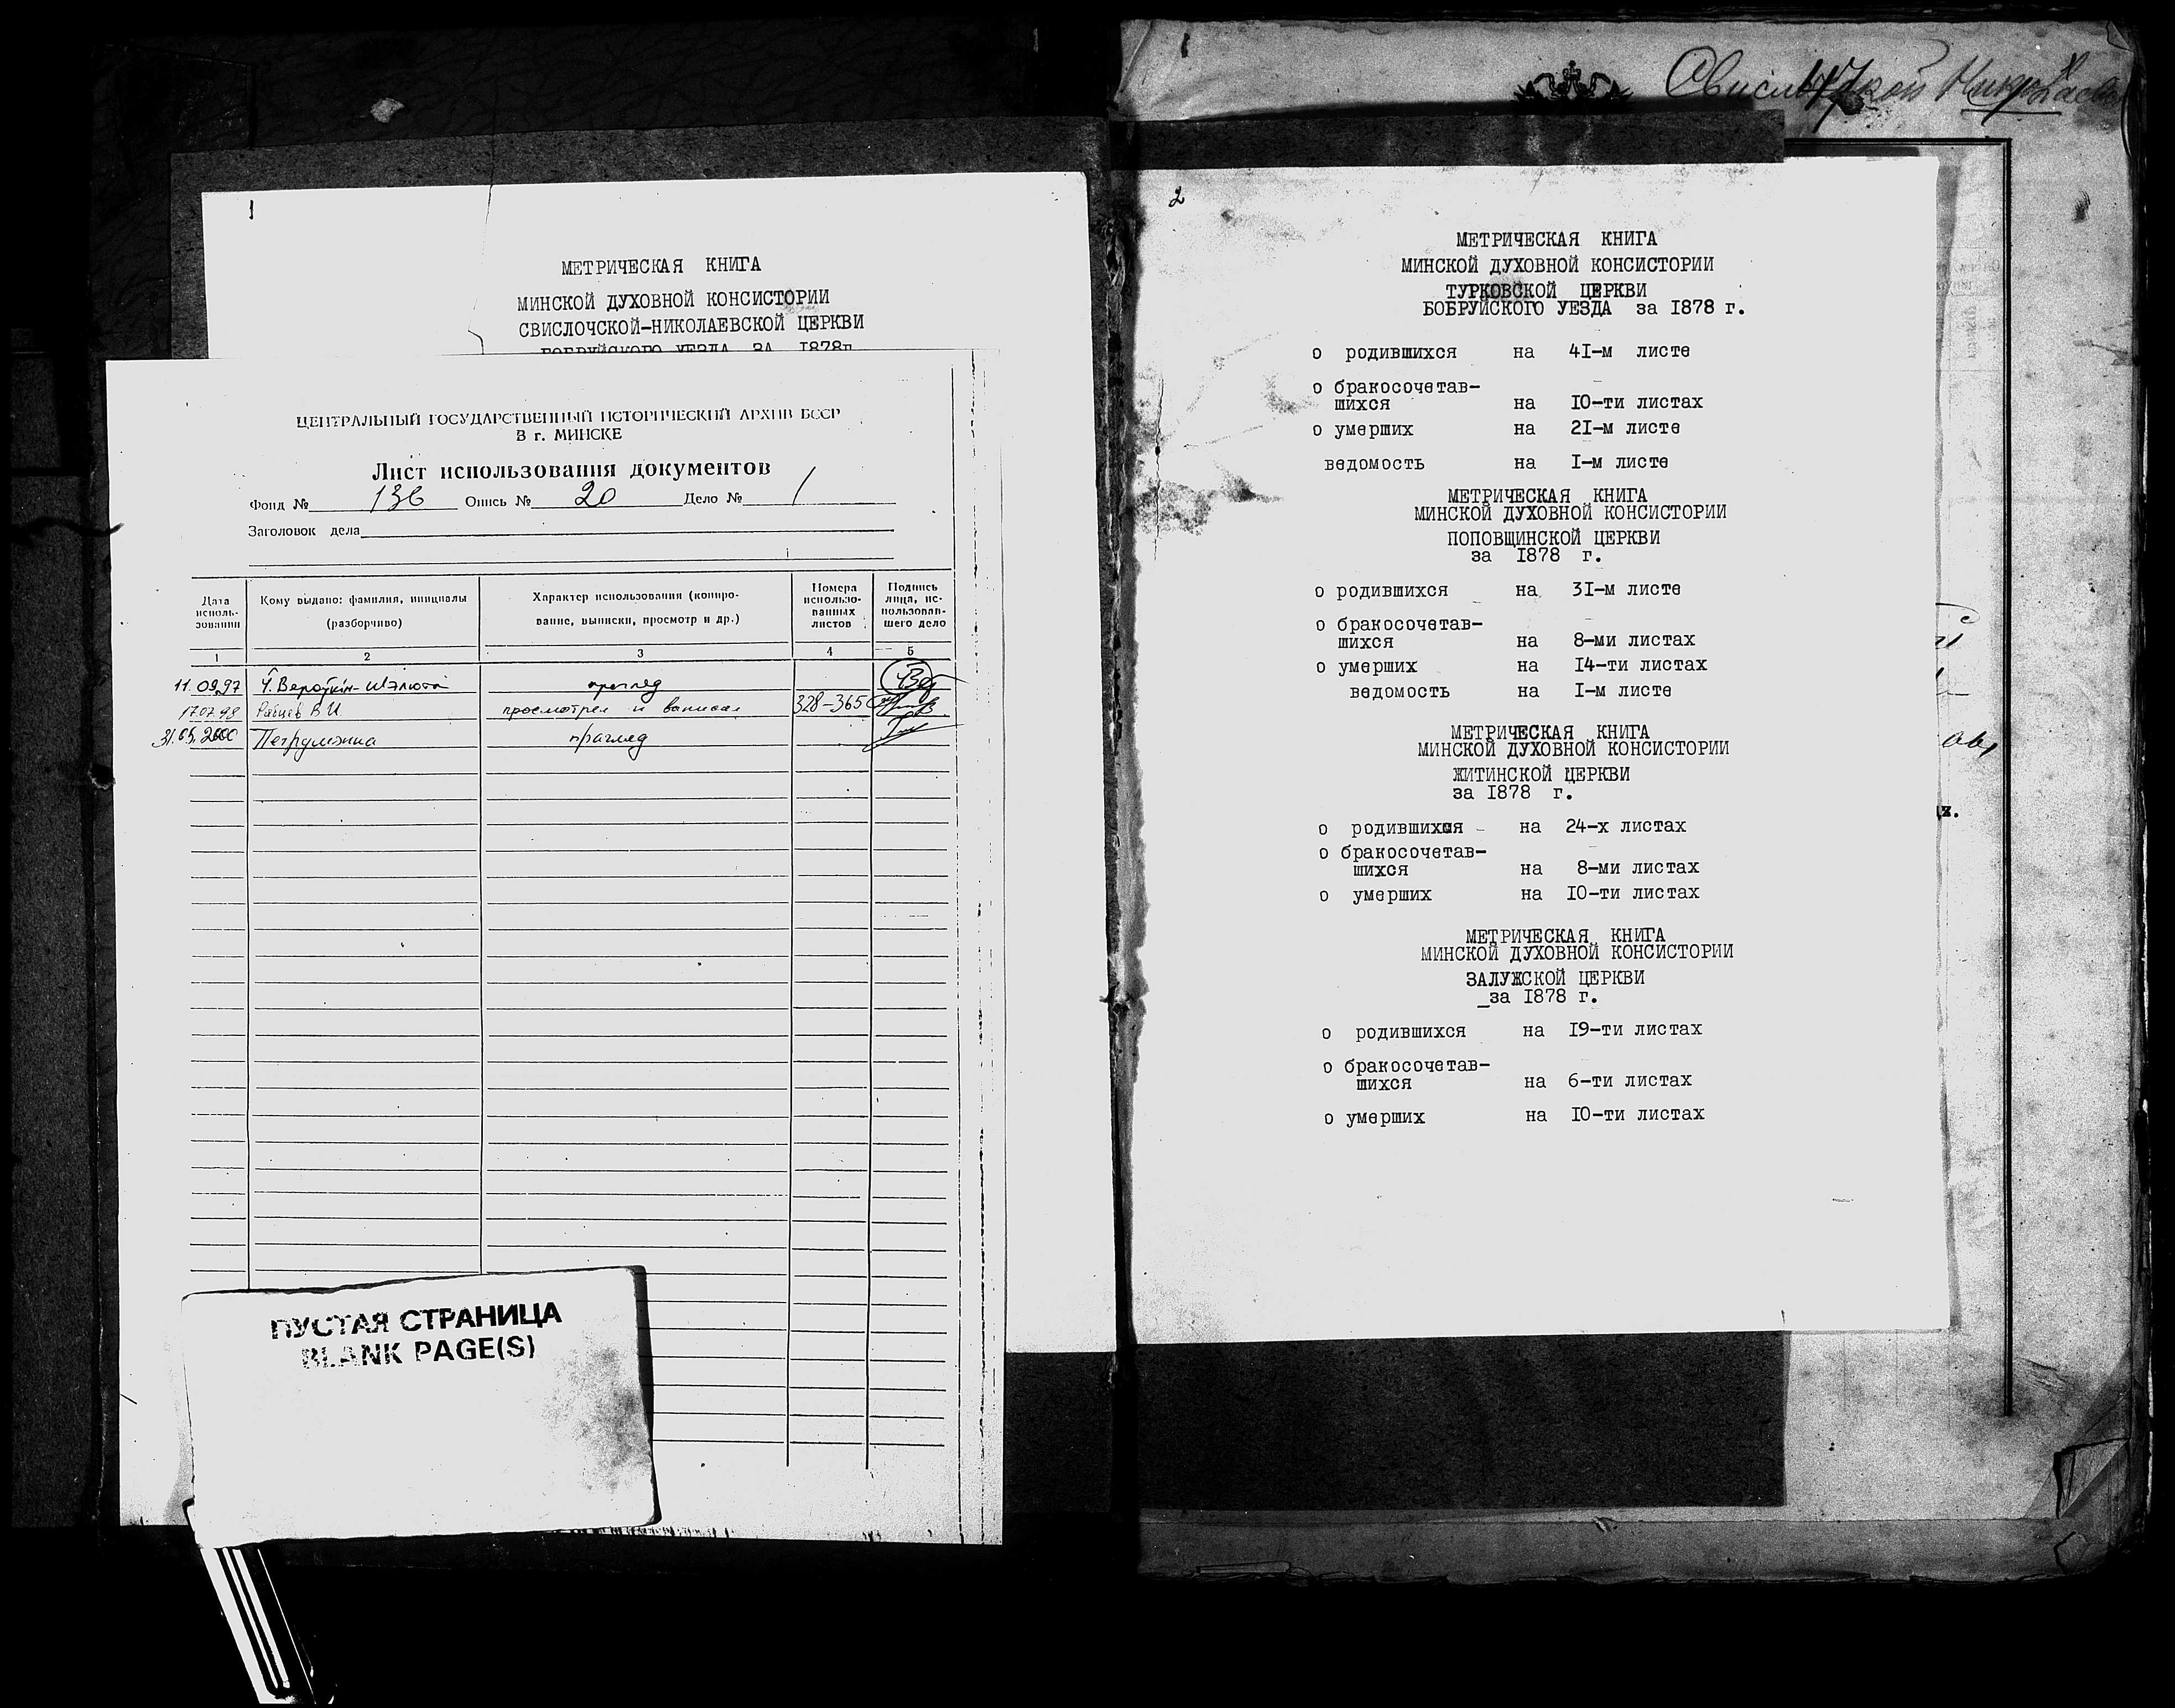 1
МЕТРИЧЕСКАЯ КНИГА
МИНСКОЙ ДУХОВНОЙ КОНСИСТОРИИ
СВИСЛОЧСКОЙ-НИКОЛАЕВСКОЙ ЦЕРКВИ
БОБРУЙСКОГО УЕЗДА ЗА 1878г.
ЦЕНТРАЛЬНЫЙ ГОСУДАРСТВЕННЫЙ ИСТОРИЧЕСКИЙ АРХИВ БССР
В г. МИНСКЕ
Лист использования документов
Фонд № 136 Опись № 20 Дело № 1
Заголовок дела
Дата использования
Кому выдано: фамилия, инициалы (разборчиво)
Характер использования (копирование, выписки, просмотр и др.)
Номера использованных листов
Подпись лица, использовавшего дело
1 2 3 4 5
11.09.97 прагляд
17.07.98 В.И. просмотрел и 328-365
31.05.2000 прагляд
ПУСТАЯ СТРАНИЦА
BLANK PAGE(S)
Свислочской
2
МЕТРИЧЕСКАЯ КНИГА
МИНСКОЙ ДУХОВНОЙ КОНСИСТОРИИ
ТУРКОВСКОЙ ЦЕРКВИ
БОБРУЙСКОГО УЕЗДА за 1878 г.
о родившихся на 41-м листе
о бракосочетав-
шихся на 10-ти листах
о умерших на 21-м листе
ведомость на 1-м листе
МЕТРИЧЕСКАЯ КНИГА
МИНСКОЙ ДУХОВНОЙ КОНСИСТОРИИ
ПОПОВЩИНСКОЙ ЦЕРКВИ
за 1878 г.
о родившихся на 31-м листе
о бракосочетав-
шихся на 8-ми листах
о умерших на 14-ти листах
ведомость на 1-м листе
МЕТРИЧЕСКАЯ КНИГА
МИНСКОЙ ДУХОВНОЙ КОНСИСТОРИИ
ЖИТИНСКОЙ ЦЕРКВИ
за 1878 г.
о родившихся на 24-х листах
о бракосочетав-
шихся на 8-ми листах
о умерших на 10-ти листах
МЕТРИЧЕСКАЯ КНИГА
МИНСКОЙ ДУХОВНОЙ КОНСИСТОРИИ
ЗАЛУЖСКОЙ ЦЕРКВИ
за 1878 г.
о родившихся на 19-ти листах
о бракосочетав-
шихся на 6-ти листах
о умерших на 10-ти листах